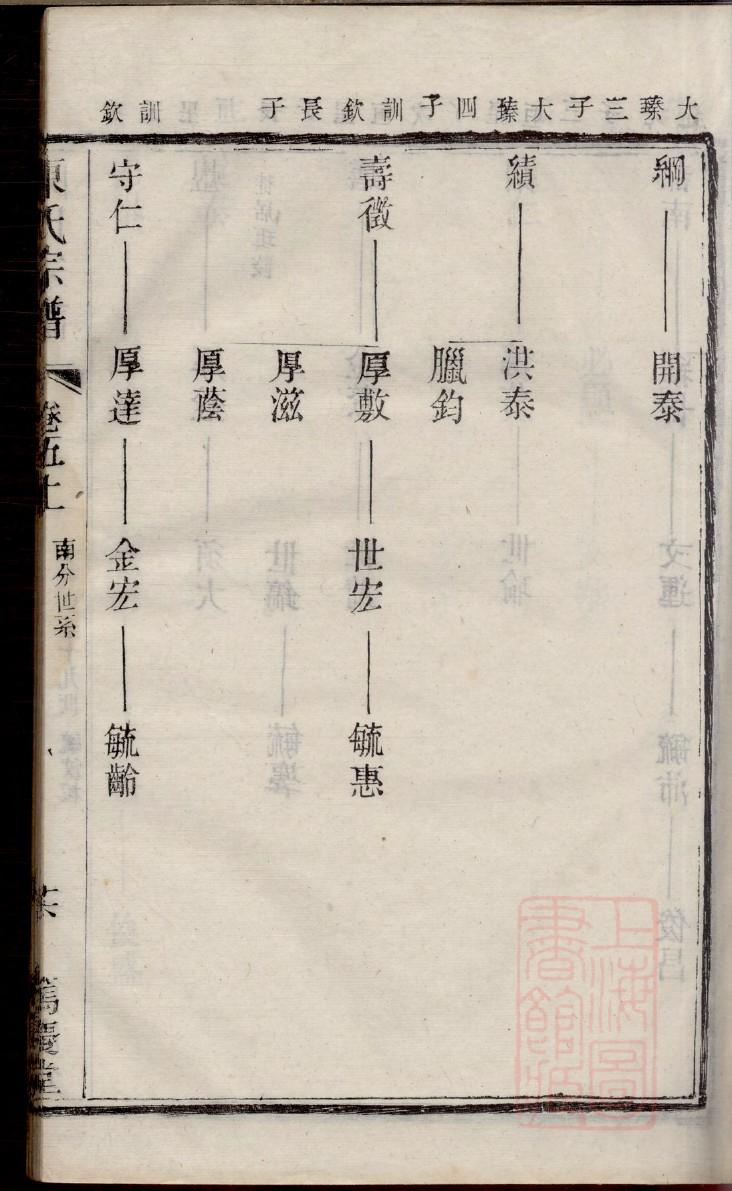 大臻三子
大臻四子
訓欽長子
訓欽
綱
開泰
績
洪泰
臘鈞
壽徵
厚敷
世宏
毓惠
厚滋
厚蔭
守仁
厚達
金宏
毓齡
氏宗譜
卷五十
南分世系
上海圖書館藏